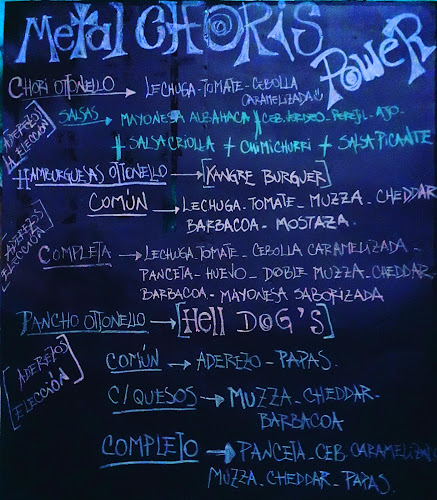 Metal CHORIS
POWER
CHORI OTTONELLO → LECHUGA-TOMATE-CEBOLLA
CARAMELIZADA
ADEREZO
A ELECCIÓN
SALSAS → MAYONESA ALBAHACA CEB. PEREJIL-AJO.
+ SALSA CRIOLLA + CHIMICHURRI + SALSA PICANTE
HAMBURGUESAS OTTONELLO → [KANGRE BURGUER]
COMÚN → LECHUGA-TOMATE-MUZZA-CHEDDAR
BARBACOA-MOSTAZA.
ADEREZOS
ELECCIÓN
COMPLETA → LECHUGA-TOMATE-CEBOLLA CARAMELIZADA-
PANCETA-HUEVO-DOBLE MUZZA-CHEDDAR
BARBACOA-MAYONESA SABORIZADA
PANCHO OTTONELLO → [Hell DOG'S]
ADEREZOS
ELECCIÓN
COMÚN → ADEREZO-PAPAS.
C/QUESOS → MUZZA-CHEDDAR-
BARBACOA
COMPLETO → PANCETA-CEB. CARAMELIZA
MUZZA-CHEDDAR-PAPAS.